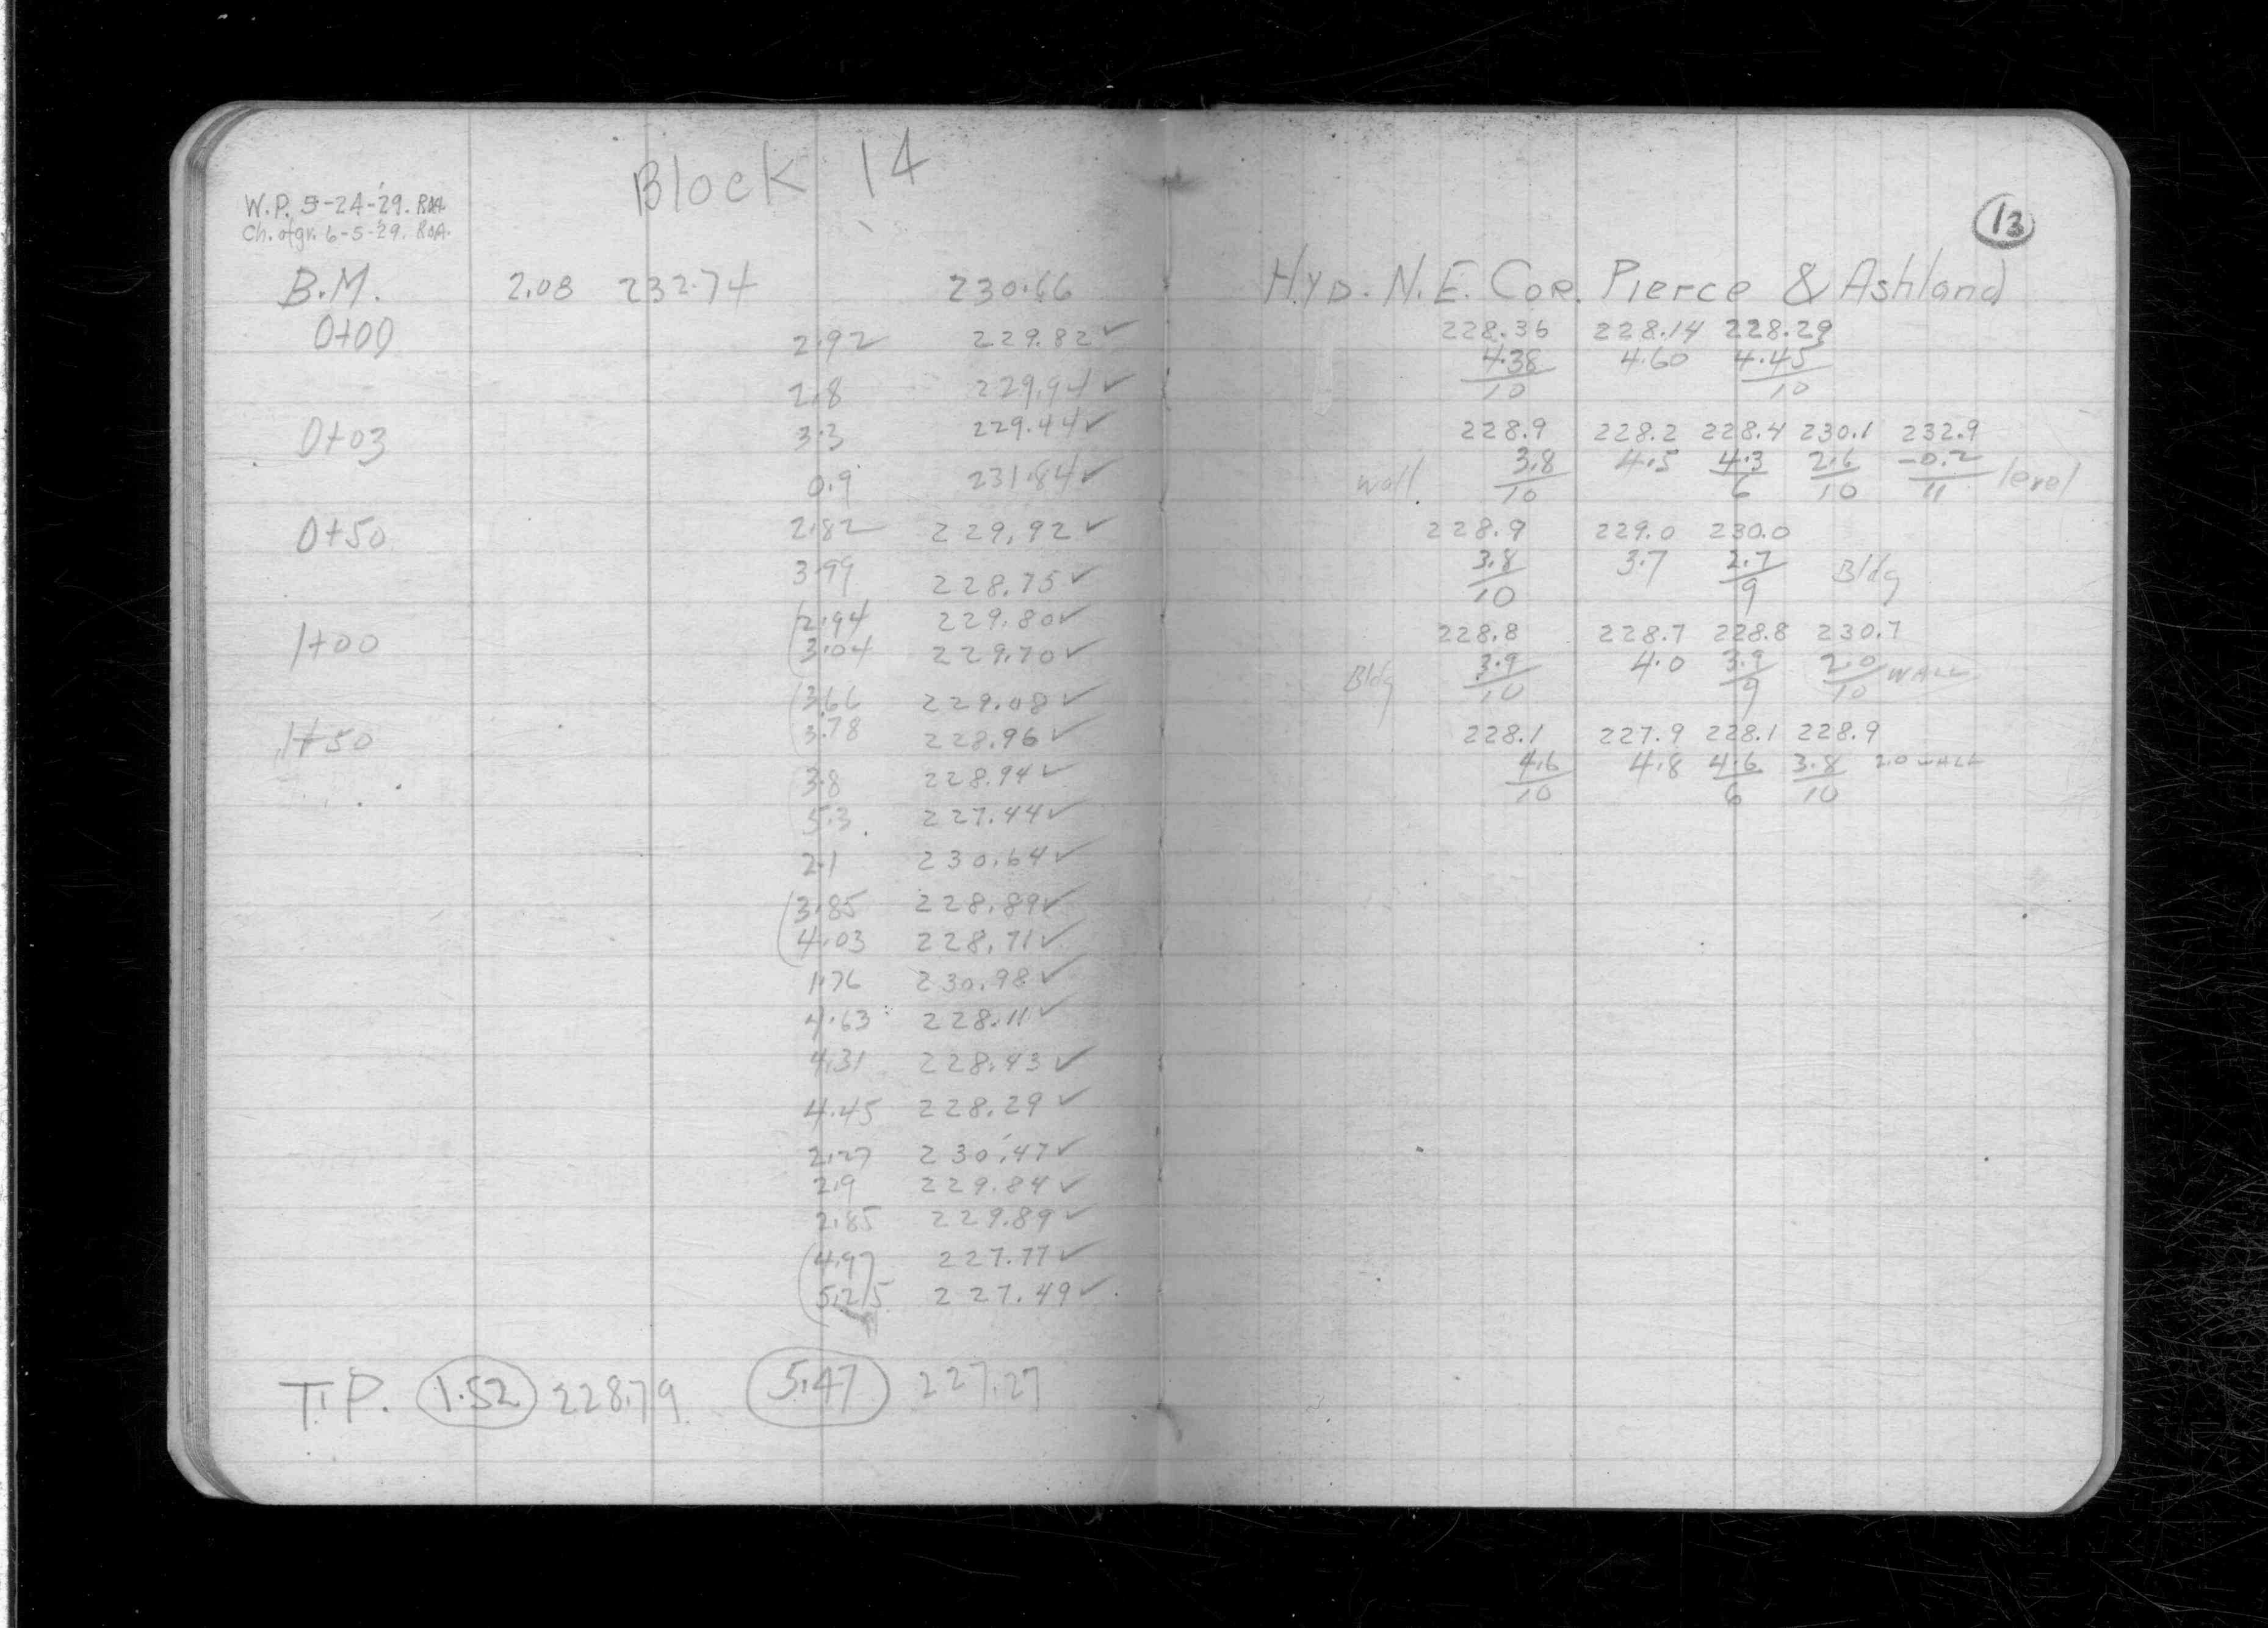 Block 14
W.P. 5-24-'29. ROA.
Ch. of gr. 6-5-'29. ROA.
B.M. 2.08 232.74 230.66
0+00 2.92 229.82 ✓
2.8 229.94 ✓
0+03 3.3 229.44 ✓
0.9 231.84 ✓
0+50 2.82 229.92 ✓
3.99 228.75 ✓
(2.94 229.80 ✓
1+00 (3.04 229.70 ✓
(3.66 229.08 ✓
1+50 (3.78 228.96 ✓
(3.8 228.94 ✓
(5.3 227.44 ✓
2.1 230.64 ✓
(3.85 228.89 ✓
(4.03 228.71 ✓
1.76 230.98 ✓
4.63 228.11 ✓
4.31 228.43 ✓
4.45 228.29 ✓
2.27 230.47 ✓
2.9 229.84 ✓
2.85 229.89 ✓
(4.97 227.77 ✓
(5.25 227.49 ✓
T.P. 1.52 228.79 5.47 227.27
13
HYD. N.E. COR. PIERCE & Ashland
228.36 228.14 228.29
4.38 4.60 4.45
10 10
228.9 228.2 228.4 230.1 232.9
Wall 3.8 4.5 4.3 2.6 -0.2 level
10 6 10 11
228.9 229.0 230.0
3.8 3.7 2.7 Bldg
10 9
228.8 228.7 228.8 230.7
Bldg 3.9 4.0 3.9 2.0 WALL
10 9 10
228.1 227.9 228.1 228.9
4.6 4.8 4.6 3.8 2.0 WALL
10 6 10